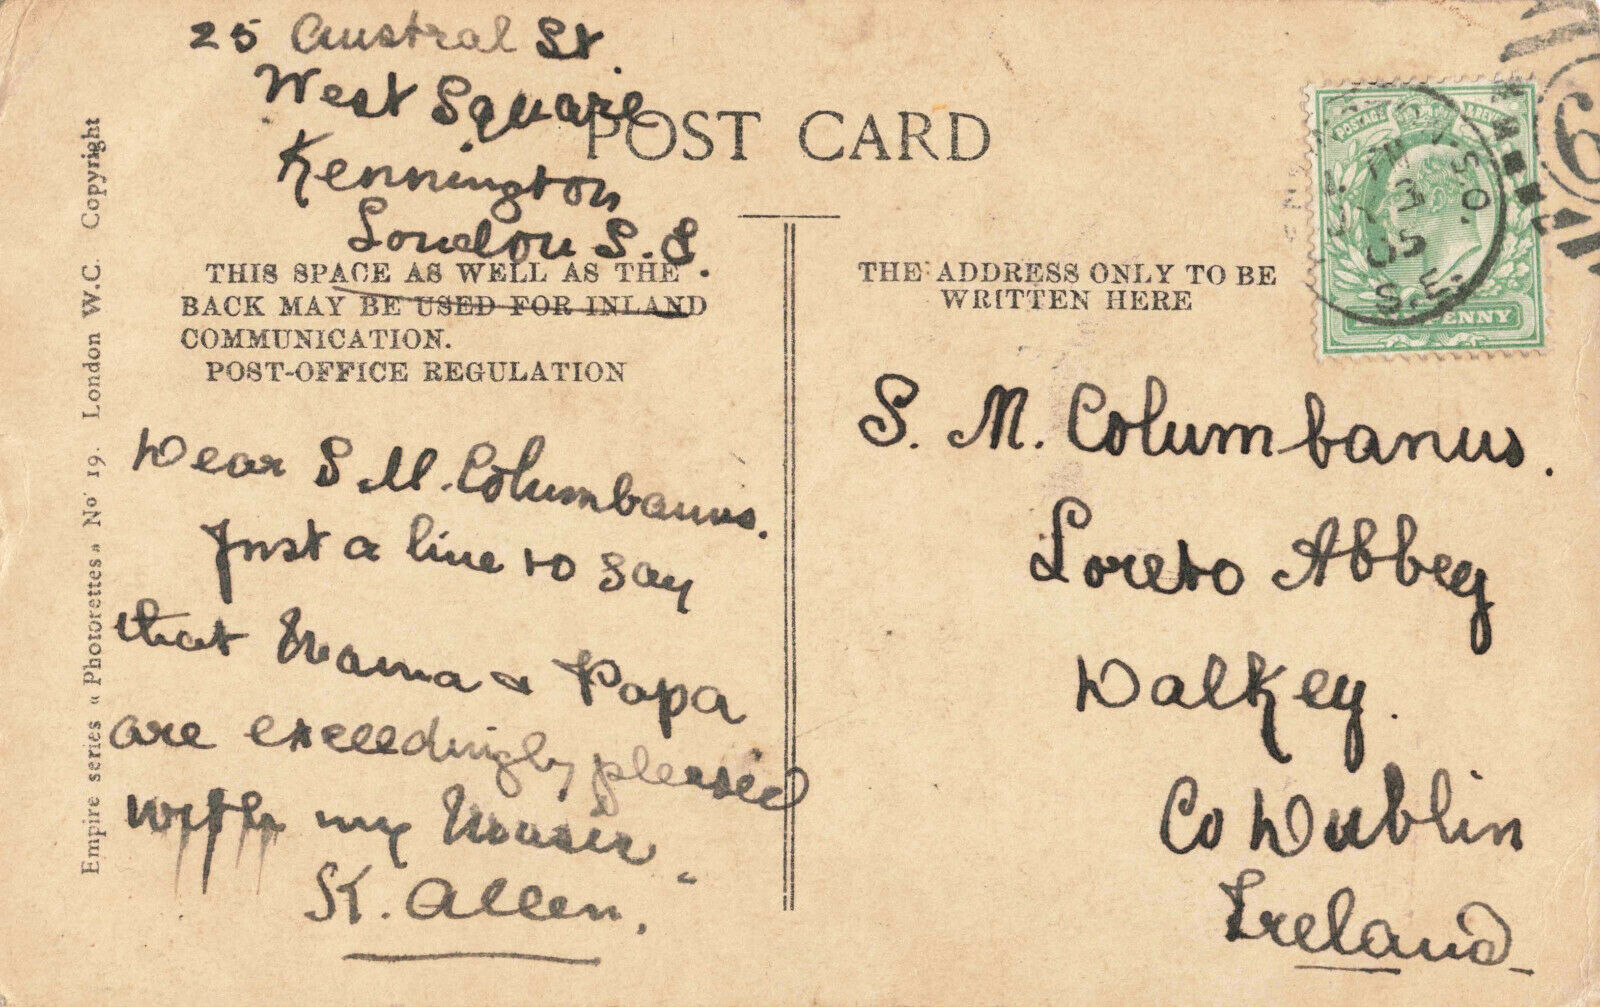 25 Austral St.
West Square
Kennington
London S.E.
POST CARD
THIS SPACE AS WELL AS THE
BACK MAY BE USED FOR INLAND
COMMUNICATION.
POST-OFFICE REGULATION
Dear S M. Columbanus.
Just a line to say
that Mama & Papa
are exceedingly pleased
with my Music "
K. Allen.
THE ADDRESS ONLY TO BE
WRITTEN HERE
S. M. Columbanus.
Loreto Abbey
Dalkey.
Co Dublin
Ireland
Empire series « Photorettes » No 19. London W.C. Copyright
POSTAGE
PENNY
S.O.
05
S.E.